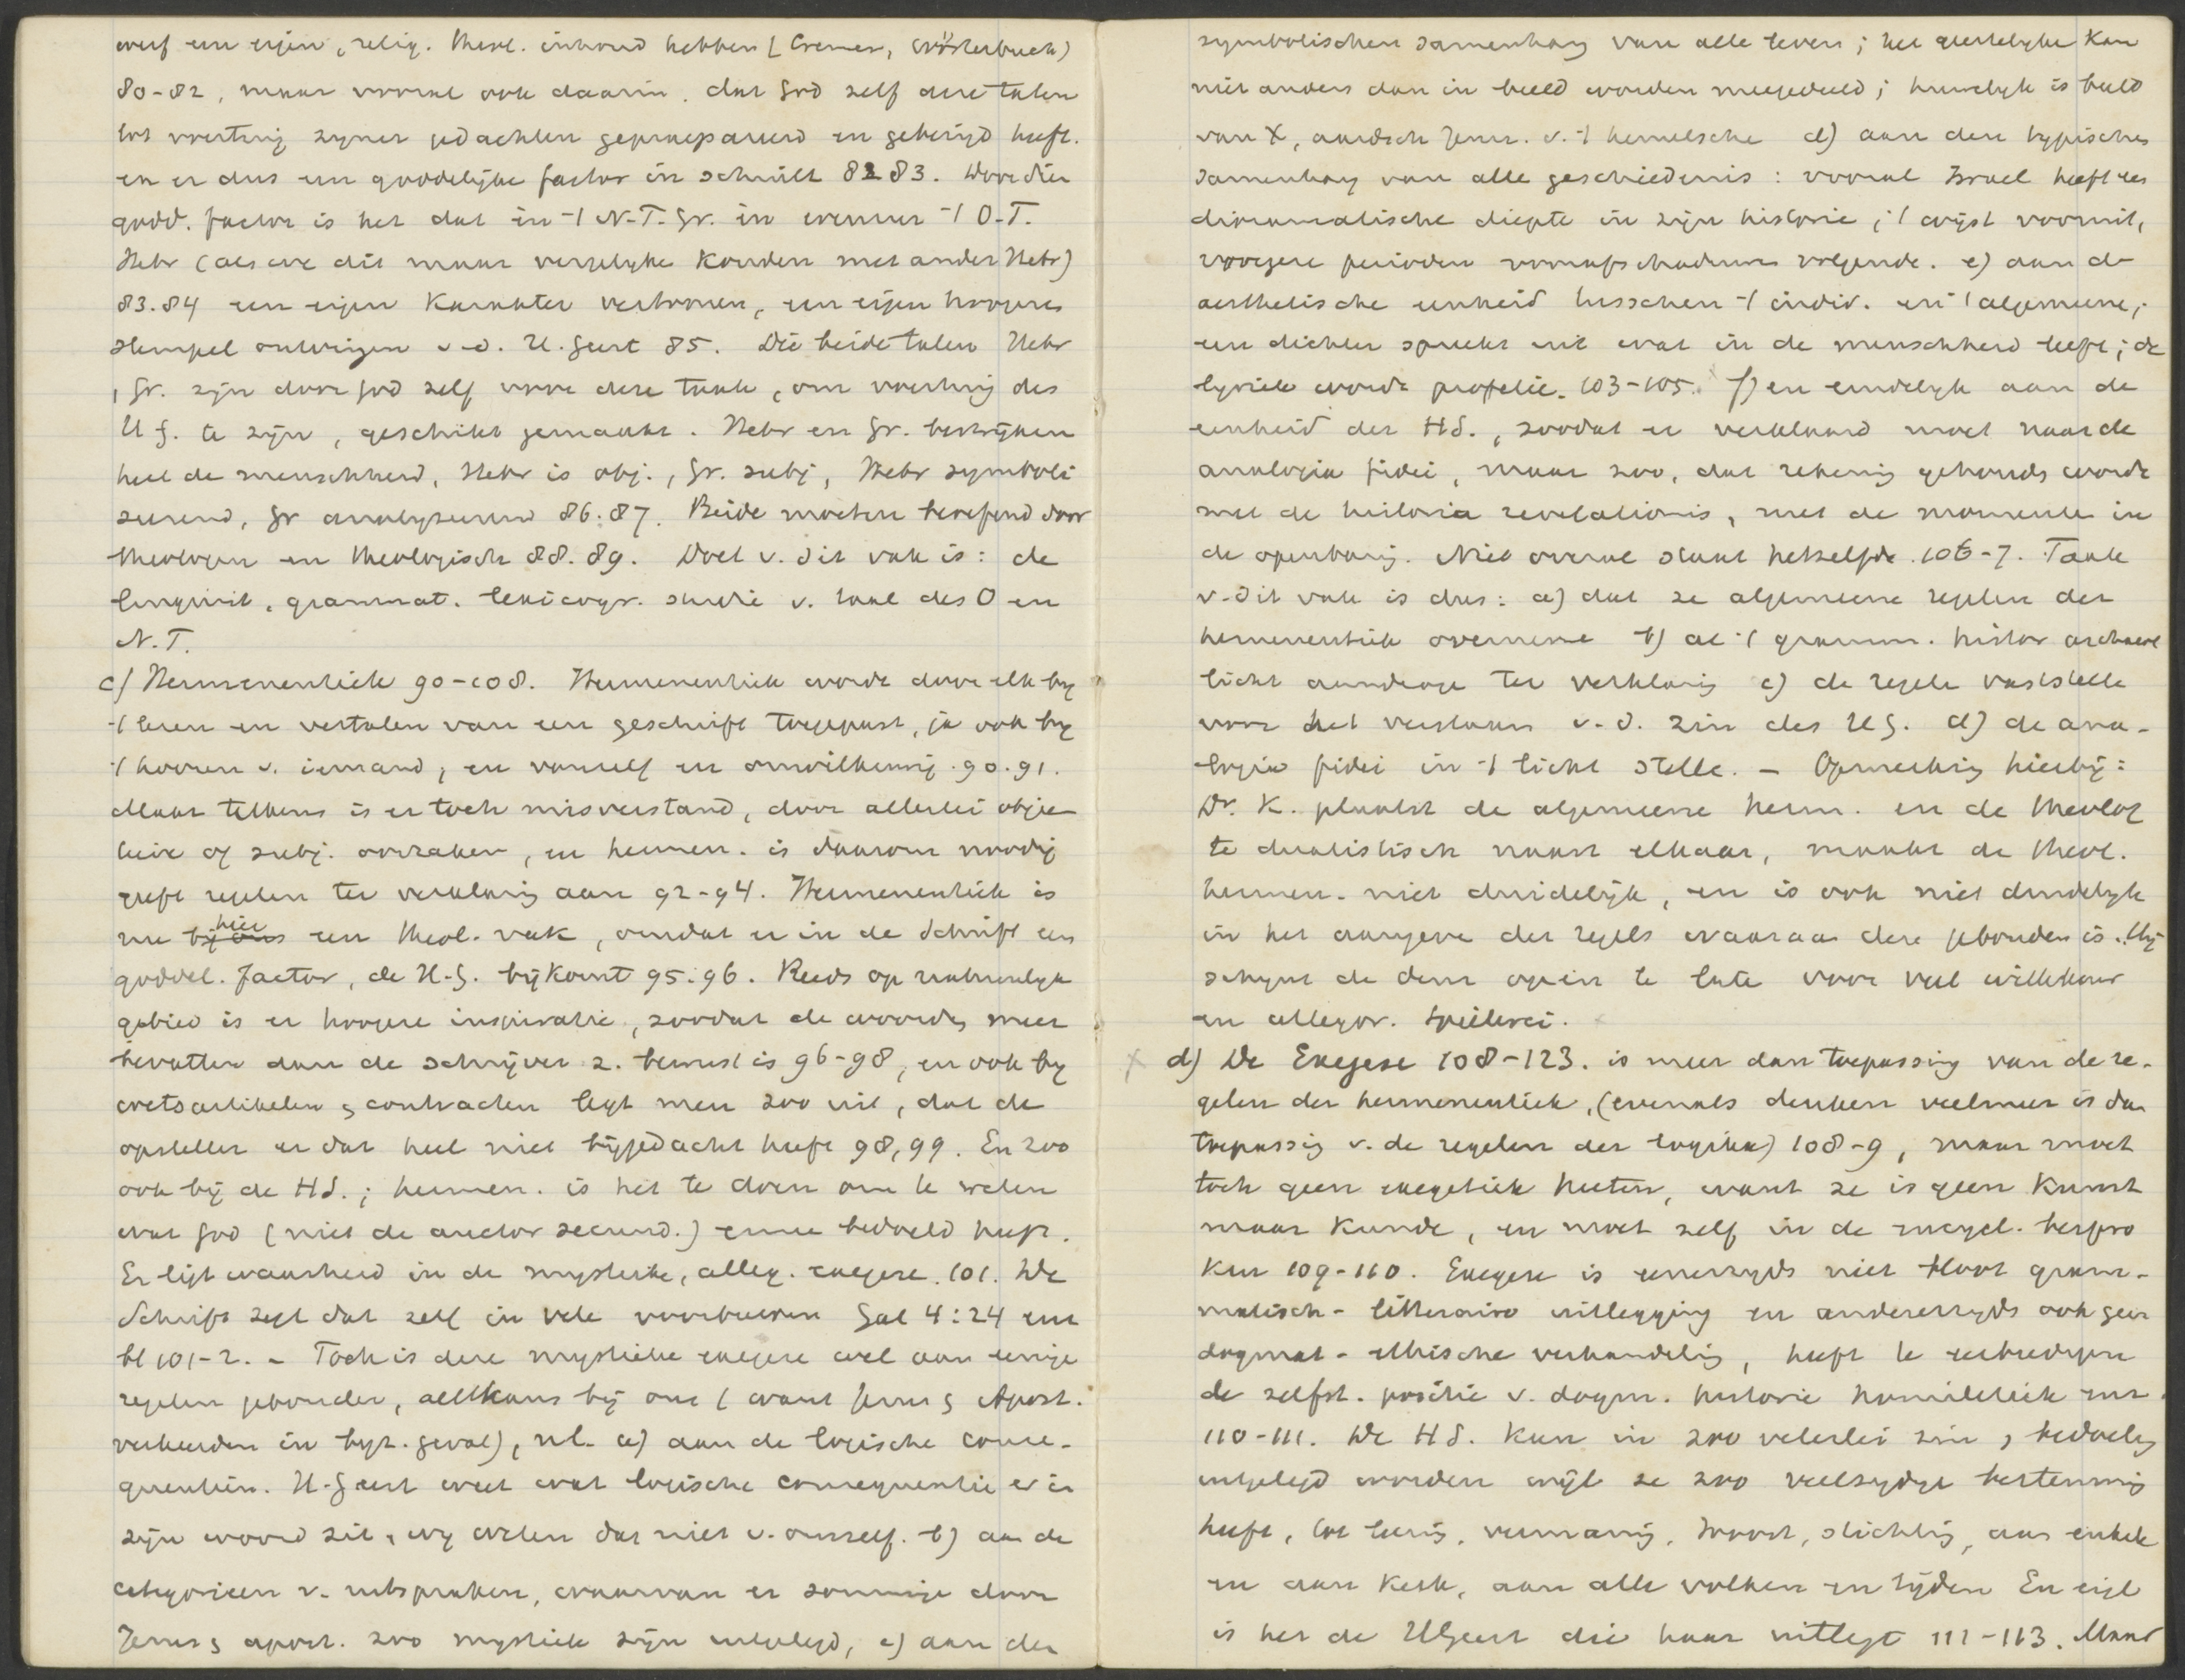 een eigen, relig. theol. inhoud hebben (Cremer, Wörterbuch)
80-82, maar vooral ook daarin, dat God zelf deze talen
tot voertuig zyner gedachten gepraepareerd en geheiligd heeft.
en er dus een goddelijke factor in schuilt 82 83. Door dien
godd. factor is het dat in 't N.T. Gr. en evenzeer 't O.T.
Hebr (als we dit maar vergelyken konden met ander Hebr)
83.84 een eigen karakter vertoonen, een eigen hoogeren
stempel ontvingen v.d. H. Geest 85. Die beide talen Hebr
, Gr. zijn door God zelf voor deze taak, om voertuig des
H G. te zijn, geschikt gemaakt. Hebr en Gr. bestrijken
heel de menschheid, Hebr is obj., Gr. subj, Hebr symboli
seerend, Gr analyseerend 86.87. Beide moeten beoefend door
theologen en theologisch 88.89. Doel v. dit vak is: de
linguist, grammat. lexicogr. studie v. taal des O en
N.T.
c) Hermeneutiek 90-108. Hermeneutiek wordt door elk by
't lezen en vertalen van een geschrift toegepast, ja ook by
't hooren v. iemand, en vanzelf en onwillekeurig 90.91.
Maar telkens is er toch misverstand, door allerlei objec
tieve of subj. oorzaken, en hermen. is daarom noodig
geeft regelen ter verklaring aan 92-94. Hermeneutiek is
nu hier een theol. vak, omdat er in de Schrift een
goddel. factor, de H.G. bijkomt 95.96. Reeds op natuurlyk
gebied is er hoogere inspiratie, zoodat de woorden meer
bevatten dan de schrijver z. bewust is 96-98, en ook by
wetsartikelen & contracten legt men zoo uit, dat de
opsteller er dat heel niet bijgedacht heeft 98,99. En zoo
ook bij de H.S.; hermen. is het te doen om te weten
wat God (niet de auctor secund.) ermee bedoeld heeft.
Er ligt waarheid in de mystieke, alleg. exegese. 101. De
Schrift zegt dat zelf in vele voorbeelden Gal 4:24 enz
bl 101-2. - Toch is deze mystieke exegese wel aan eenige
regelen gebonden, althans bij ons (want Jezus & Apost.
verkeerden in byz. geval), nl. a) aan de logische conse-
quentiën. H. Geest weet wat logische consequentie er in
zijn woord zit, wy weten dat niet v. onszelf. b) aan de
categorieën v. uitspraken, waarvan er sommige door
Jezus & apost. zoo mystiek zijn uitgelegd, c) aan den
symbolischen samenhang van alle leven; het geestelyke kan
niet anders dan in beeld worden meegedeeld; huwelyk is beeld
van X, aardsch Jeruz. v. 't hemelsche d) aan den typischen
samenhang van alle geschiedenis: vooral Israel heeft een
dioramatische diepte in zijn historie; 't wijst vooruit,
vroegere perioden vooraf schaduwen volgende. e) aan de
aesthetische eenheid tusschen 't indiv. en 't algemeene;
een dichter spreekt uit wat in de menschheid leeft; de
lyriek wordt profetie. 103-105. f) en eindelyk aan de
eenheid der H.S., zoodat er verklaard moet naar de
analogia fidei, maar zoo, dat rekening gehouden worde
met de historia revelationis, met de momenten in
de openbaring. Niet overal staat hetzelfde. 106-7. Taak
v. dit vak is dus: a) dat ze algemeene regelen der
hermeneutiek overneme b) al 't gramm. histor archaeol
licht aandrage ter verklaring c) de regele vaststelle
voor het verstaan v.d. zin des HG. d) de ana-
logia fidei in 't licht stelle. - Opmerking hierbij:
Dr. K. plaatst de algemeene herm. en de theolog
te dualistisch naast elkaar, maakt de theol.
hermen. niet duidelijk, en is ook niet duidelyk
in het aangeven der regels waaraan deze gebonden is. Hij
schynt de deur open te laten voor veel willekeur
en allegor. Spielerei.
x d) De Exegese 108-123. is meer dan toepassing van de re-
gelen der hermeneutiek, (evenals denken veelmeer is dan
toepassing v. de regelen der logika) 108-9, maar moet
toch geen exegetiek heeten, want ze is geen kunst
maar kunde, en moet zelf in de encycl. bespro
ken 109-110. Exegese is eenerzyds niet bloot gram-
matisch-litteraire uitlegging en anderzyds ook geen
dogmat-ethische verhandeling, heeft te eerbiedigen
de zelfst. positie v. dogm. historie homiletiek enz.
110-111. De H S. kan in zoo velerlei zin & bedoeling
uitgelegd worden wijl ze zoo veelzydige bestemming
heeft, tot leering, vermaning, troost, stichting, aan enkele
en aan kerk, aan alle volken en tijden En eigl
is het de HGeest die haar uitlegt 111-113. Maar